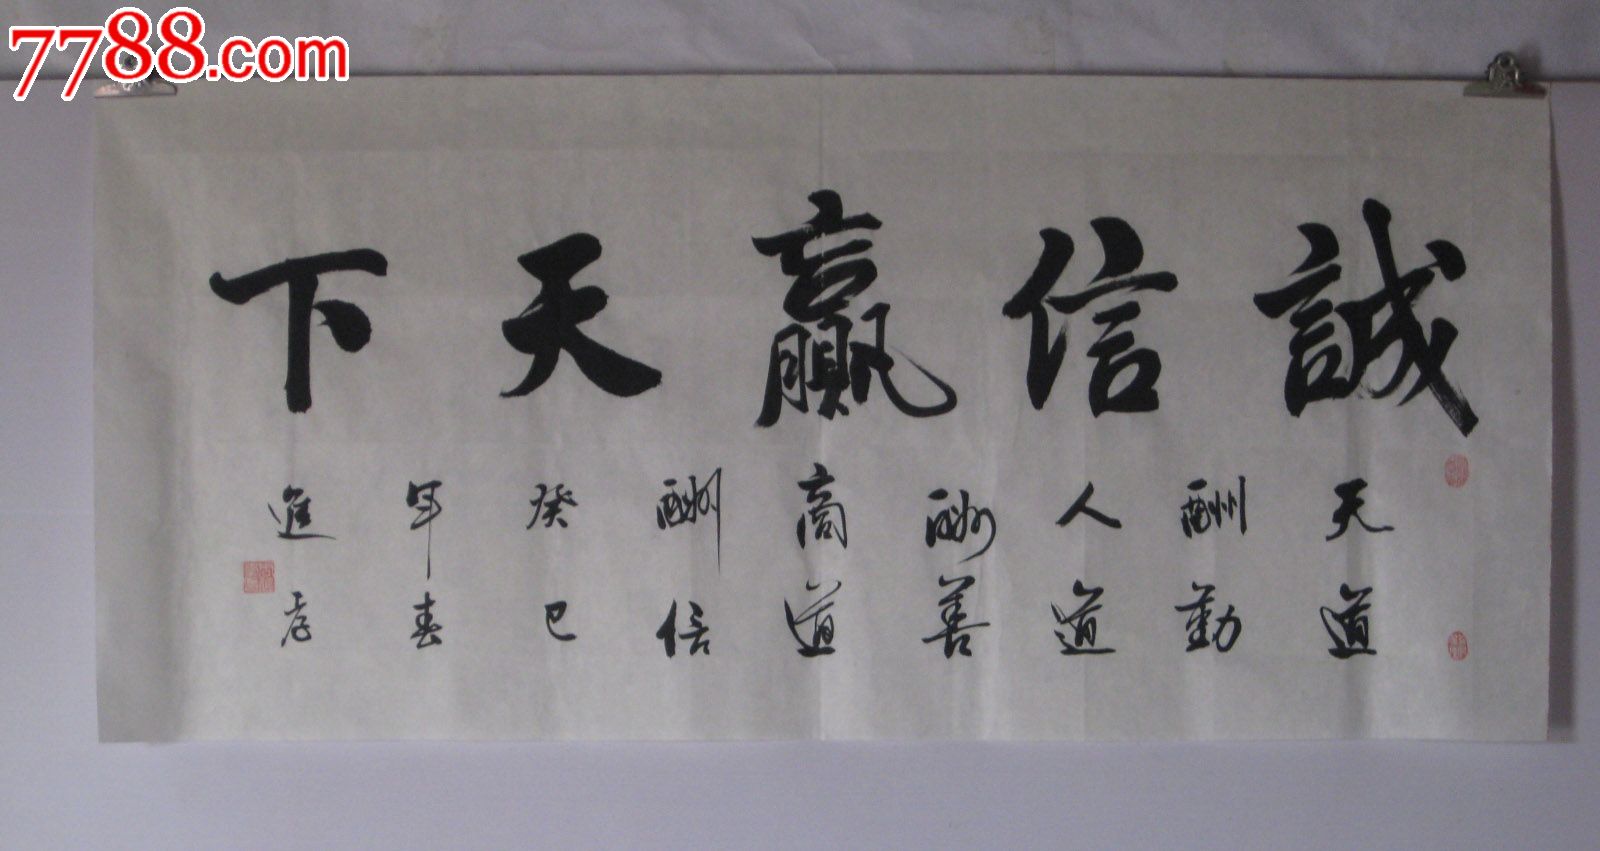 7788.com
誠信贏天下
天道
酬勤
人道
酬善
商道
酬信
癸巳
年春
進彦